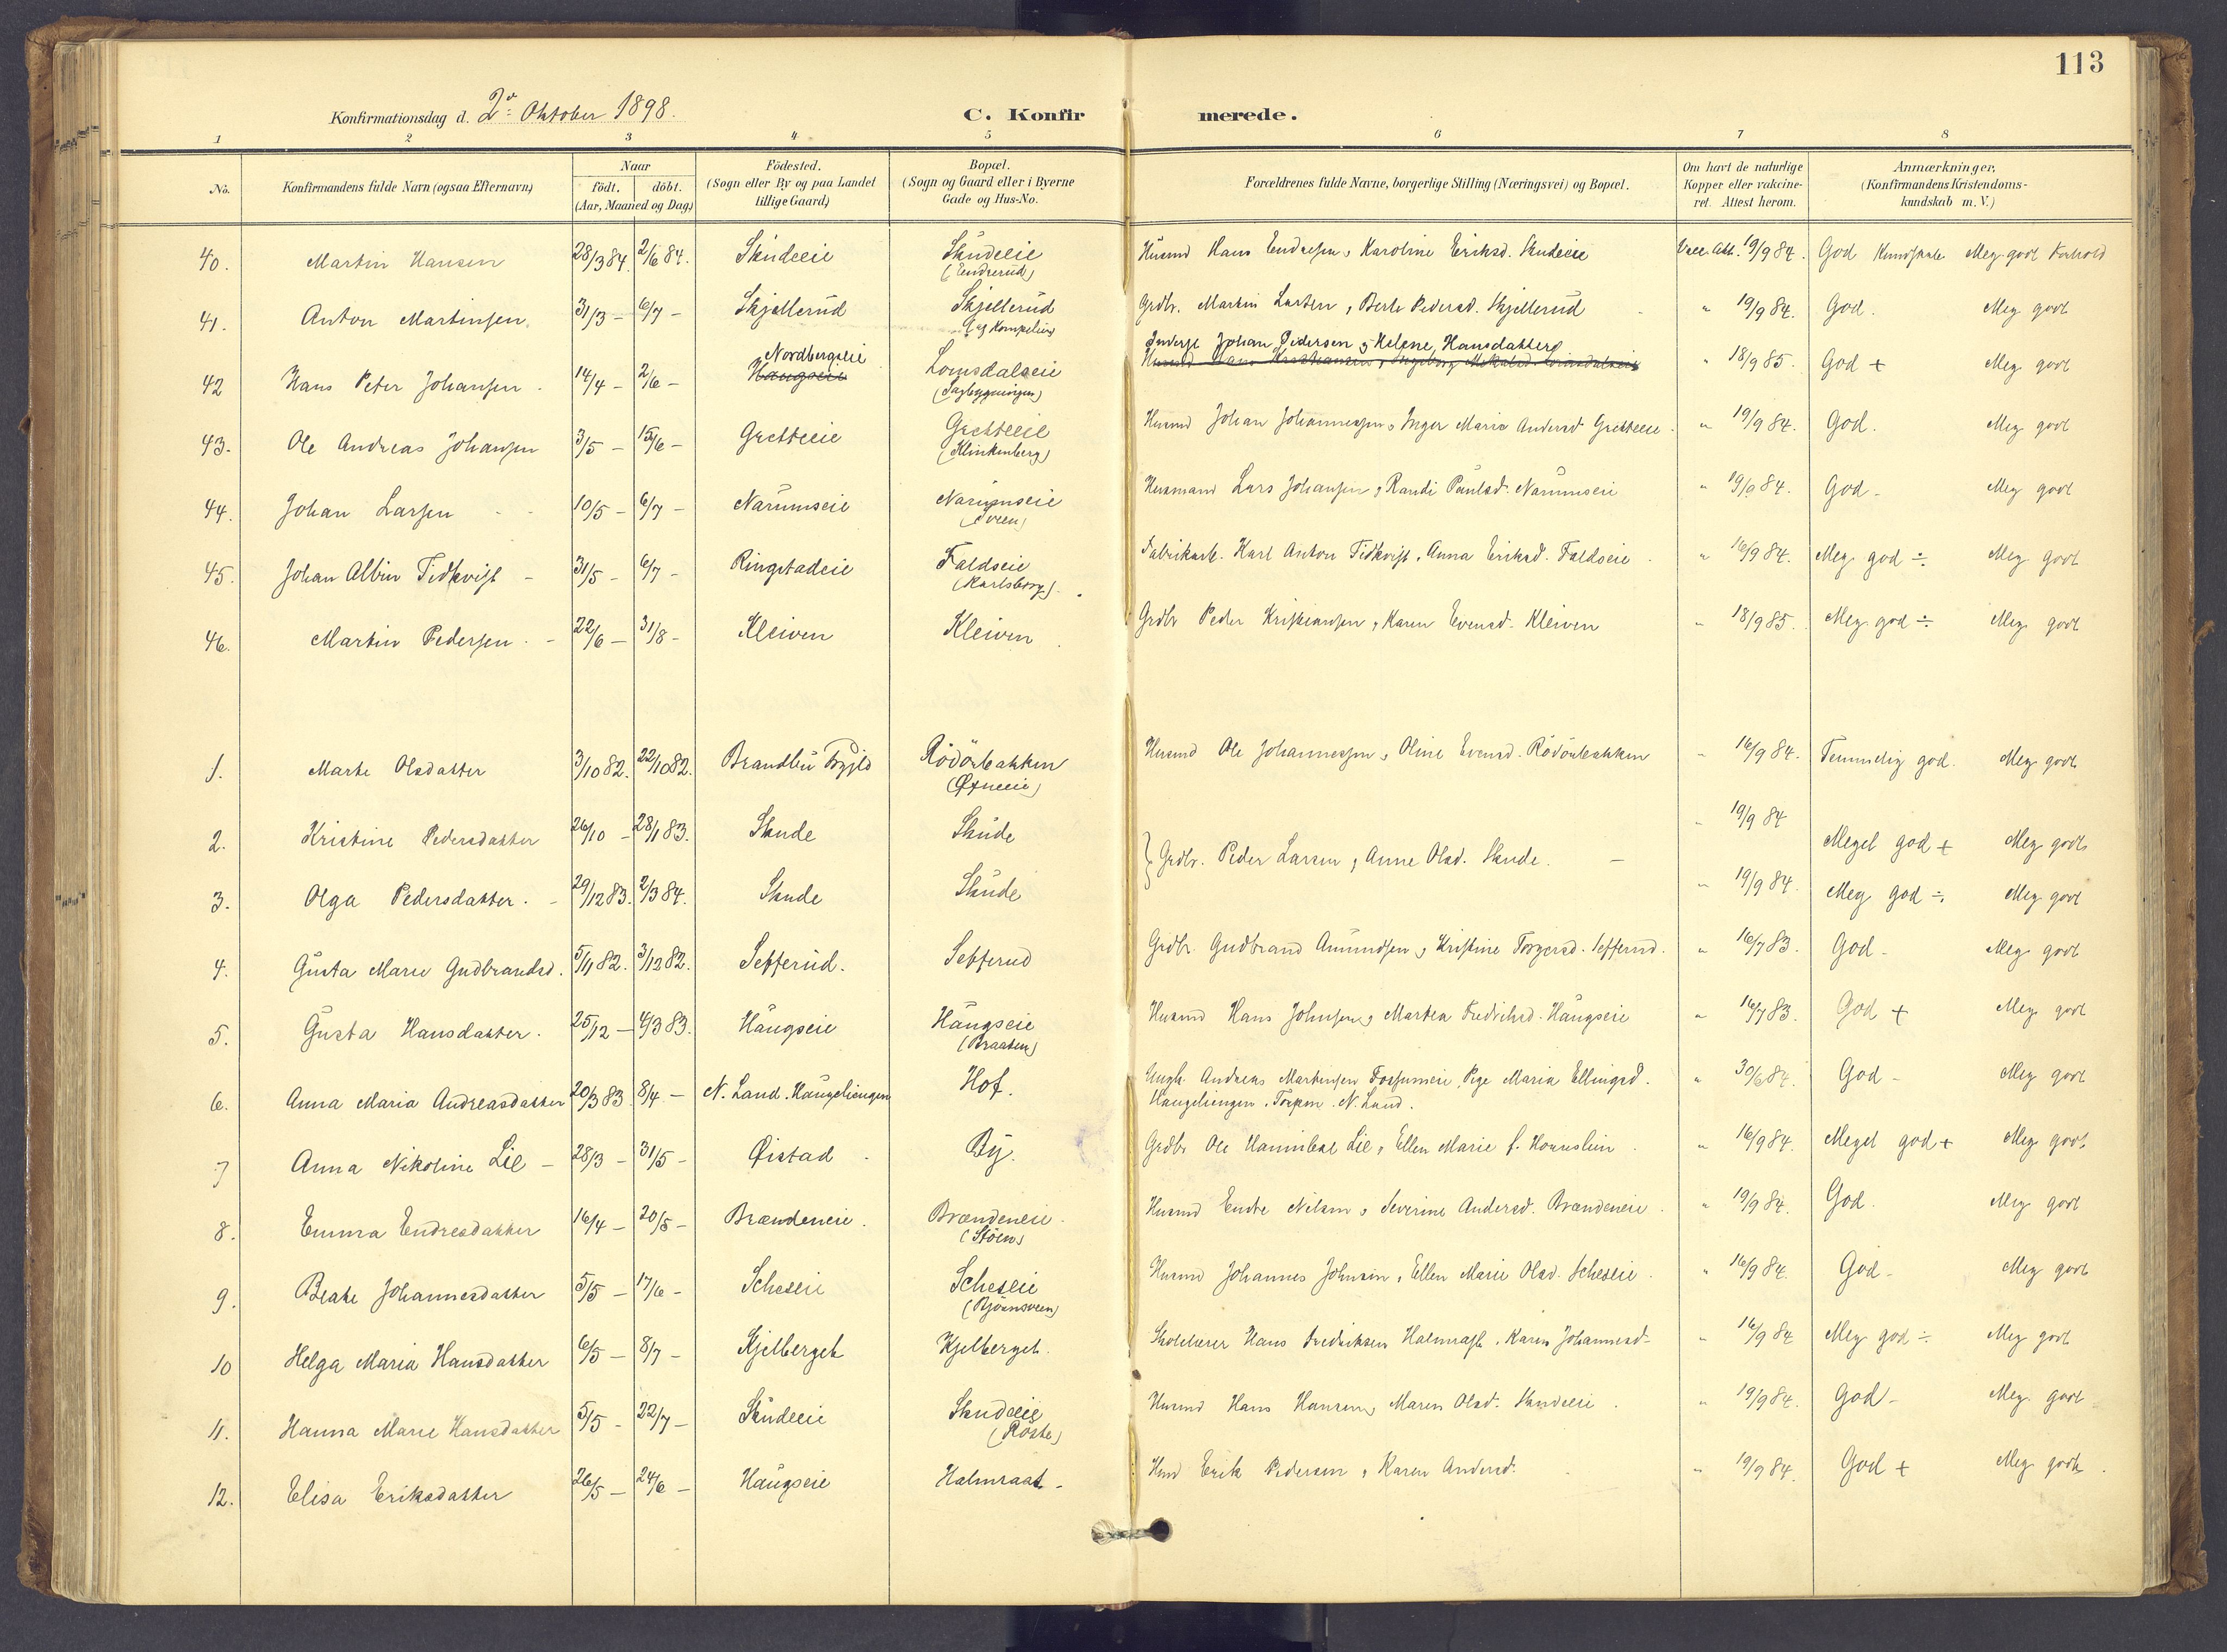 113
Konfirmationsdag d. 2den Oktober 1898.
C. Konfirmerede.
1 2 3 4 5 6 7 8
No. Konfirmandens fulde Navn (ogsaa Efternavn) Naar födt. döbt. (Aar, Maaned og Dag) Födested. (Sogn eller By og paa Landet tillige Gaard) Bopæl. (Sogn og Gaard eller i Byerne Gade og Hus-No. Forældrenes fulde Navne, borgerlige Stilling (Næringsvei) og Bopæl. Om havt de naturlige Kopper eller vakcineret. Attest herom. Anmærkninger, (Konfirmandens Kristendomskundskab m. V.)
40. Martin Hansen 28/3 84. 2/6 84. Skudeeie Skudeeie (Endrerud) Husmd Hans Endresen, Karoline Eriksd. Skudeeie Vacc. Att. 19/9 84. God Kundskab Meg. godt Forhold
41. Anton Martinsen. 31/3 – 6/7 – Skjellerud Skjellerud Grdbr. Martin Larsen, Berte Pedersd. Skjellerud " 19/9 84. God. Meg godt
42 Hans Peter Johansen 14/4 – 2/6 – Nordbergseie Haugseie Lomsdalseie (Sagbygningen) Johan Pedersen & Helene Hansdatter " 18/9 85. God + Meg godt
43. Ole Andreas Johansen 3/5 – 15/6 – Gretteeie Gretteeie (Klinkenberg) Husmd Johan Johannessen & Inger Maria Andersd Gretteeie " 19/9 84. God. Meg godt
44. Johan Larsen 10/5 – 6/7 – Narumseie Narumseie (Sveen) Husmand Lars Johansen, Randi Paulsd. Narumseie " 19/9 84. God – Meg godt
45. Johan Albin Tidkvist 31/5 – 6/7 – Ringstadeie Faldseie (Karlsborg) Fabrikarb. Karl Anton Tidkvist, Anna Eriksd. Faldseie " 16/9 84. Meg. god ÷ Meg godt
46. Martin Pedersen 22/6 – 31/8 – Kleiven Kleiven Grdbr Peder Kristiansen, Karen Evensd. Kleiven " 18/9 85. Meg. god ÷ Meg. godt
1. Marte Olsdatter 3/10 82. 22/10 82. Brandbu Rödörbakken Husmd Ole Johannessen, Oline Evensd. Rödörbakken " 16/9 84. Temmelig god. Meg godt
2. Kristine Pedersdatter 26/10 – 28/1 83. Skude Skude " 19/9 84 Meget god + Meg godt
} Grdbr. Peder Larsen, Anne Olsd. Skude. –
3. Olga Pedersdatter 29/12 83. 2/3 84. Skude Skude " 19/9 84. Meg god ÷ Meg godt
4. Gusta Marie Gudbrandsd. 5/11 82. 3/12 82. Sefferud. Sefferud Grdbr. Gudbrand Amundsen & Kristine Torgersd. Sefferud. " 16/7 83. God – Meg godt
5. Gusta Hansdatter 25/12 – 4/3 83. Haugseie Haugseie (Braaten) Husmd Hans Johnsen & Martea Fredriksd. Haugseie " 16/7 83. God + Meg godt
6. Anna Maria Andreasdatter 20/3 83 8/4 – N. Land. Haugeliengen Hof. Ungk. Andreas Martinsen Fossumeie, Pige Maria Ellingsd. " 30/6 84. God – Meg godt
Haugeliengen. Torpen. N. Land.
7 Anna Nikoline Lie – 28/3 – 31/5 – Øistad By. Grdbr Ole Hannibal Lie, Ellen Marie f. " 16/9 84. Meget god + Meg godt
8. Emma Endresdatter 16/4 – 20/5 – Brændeneie. Brændeneie. (Stöen) Husmd Endre Nilsen & Severine Andersd. Brændeneie " 19/9 84. God. Meg godt
9. Beate Johannesdatter 5/5 – 17/6 – Scheseie Scheseie (Björnsveen) Husmd Johannes Johnsen, Ellen Marie Olsd. Scheseie " 16/9 84. God – Meg godt
10 Helga Maria Hansdatter 6/5 – 8/7 – Kjelberget Kjelberget. Skolelærer Hans Fredriksen Halmrast, Karen Johannesd. " 16/9 84 Meg god ÷ Meg godt
11. Hanna Marie Hansdatter 5/5 – 22/7 – Skudeeie Skudeeie (Röste) Husmd Hans Hansen, Maren Olsd. Skudeeie " 19/9 84. God – Meg. godt
12. Elisa Eriksdatter 26/5 – 24/6 – Haugseie Halmraat. Hmd Erik Pedersen, Karen Andersd. " 19/9 84. God + Meg godt.